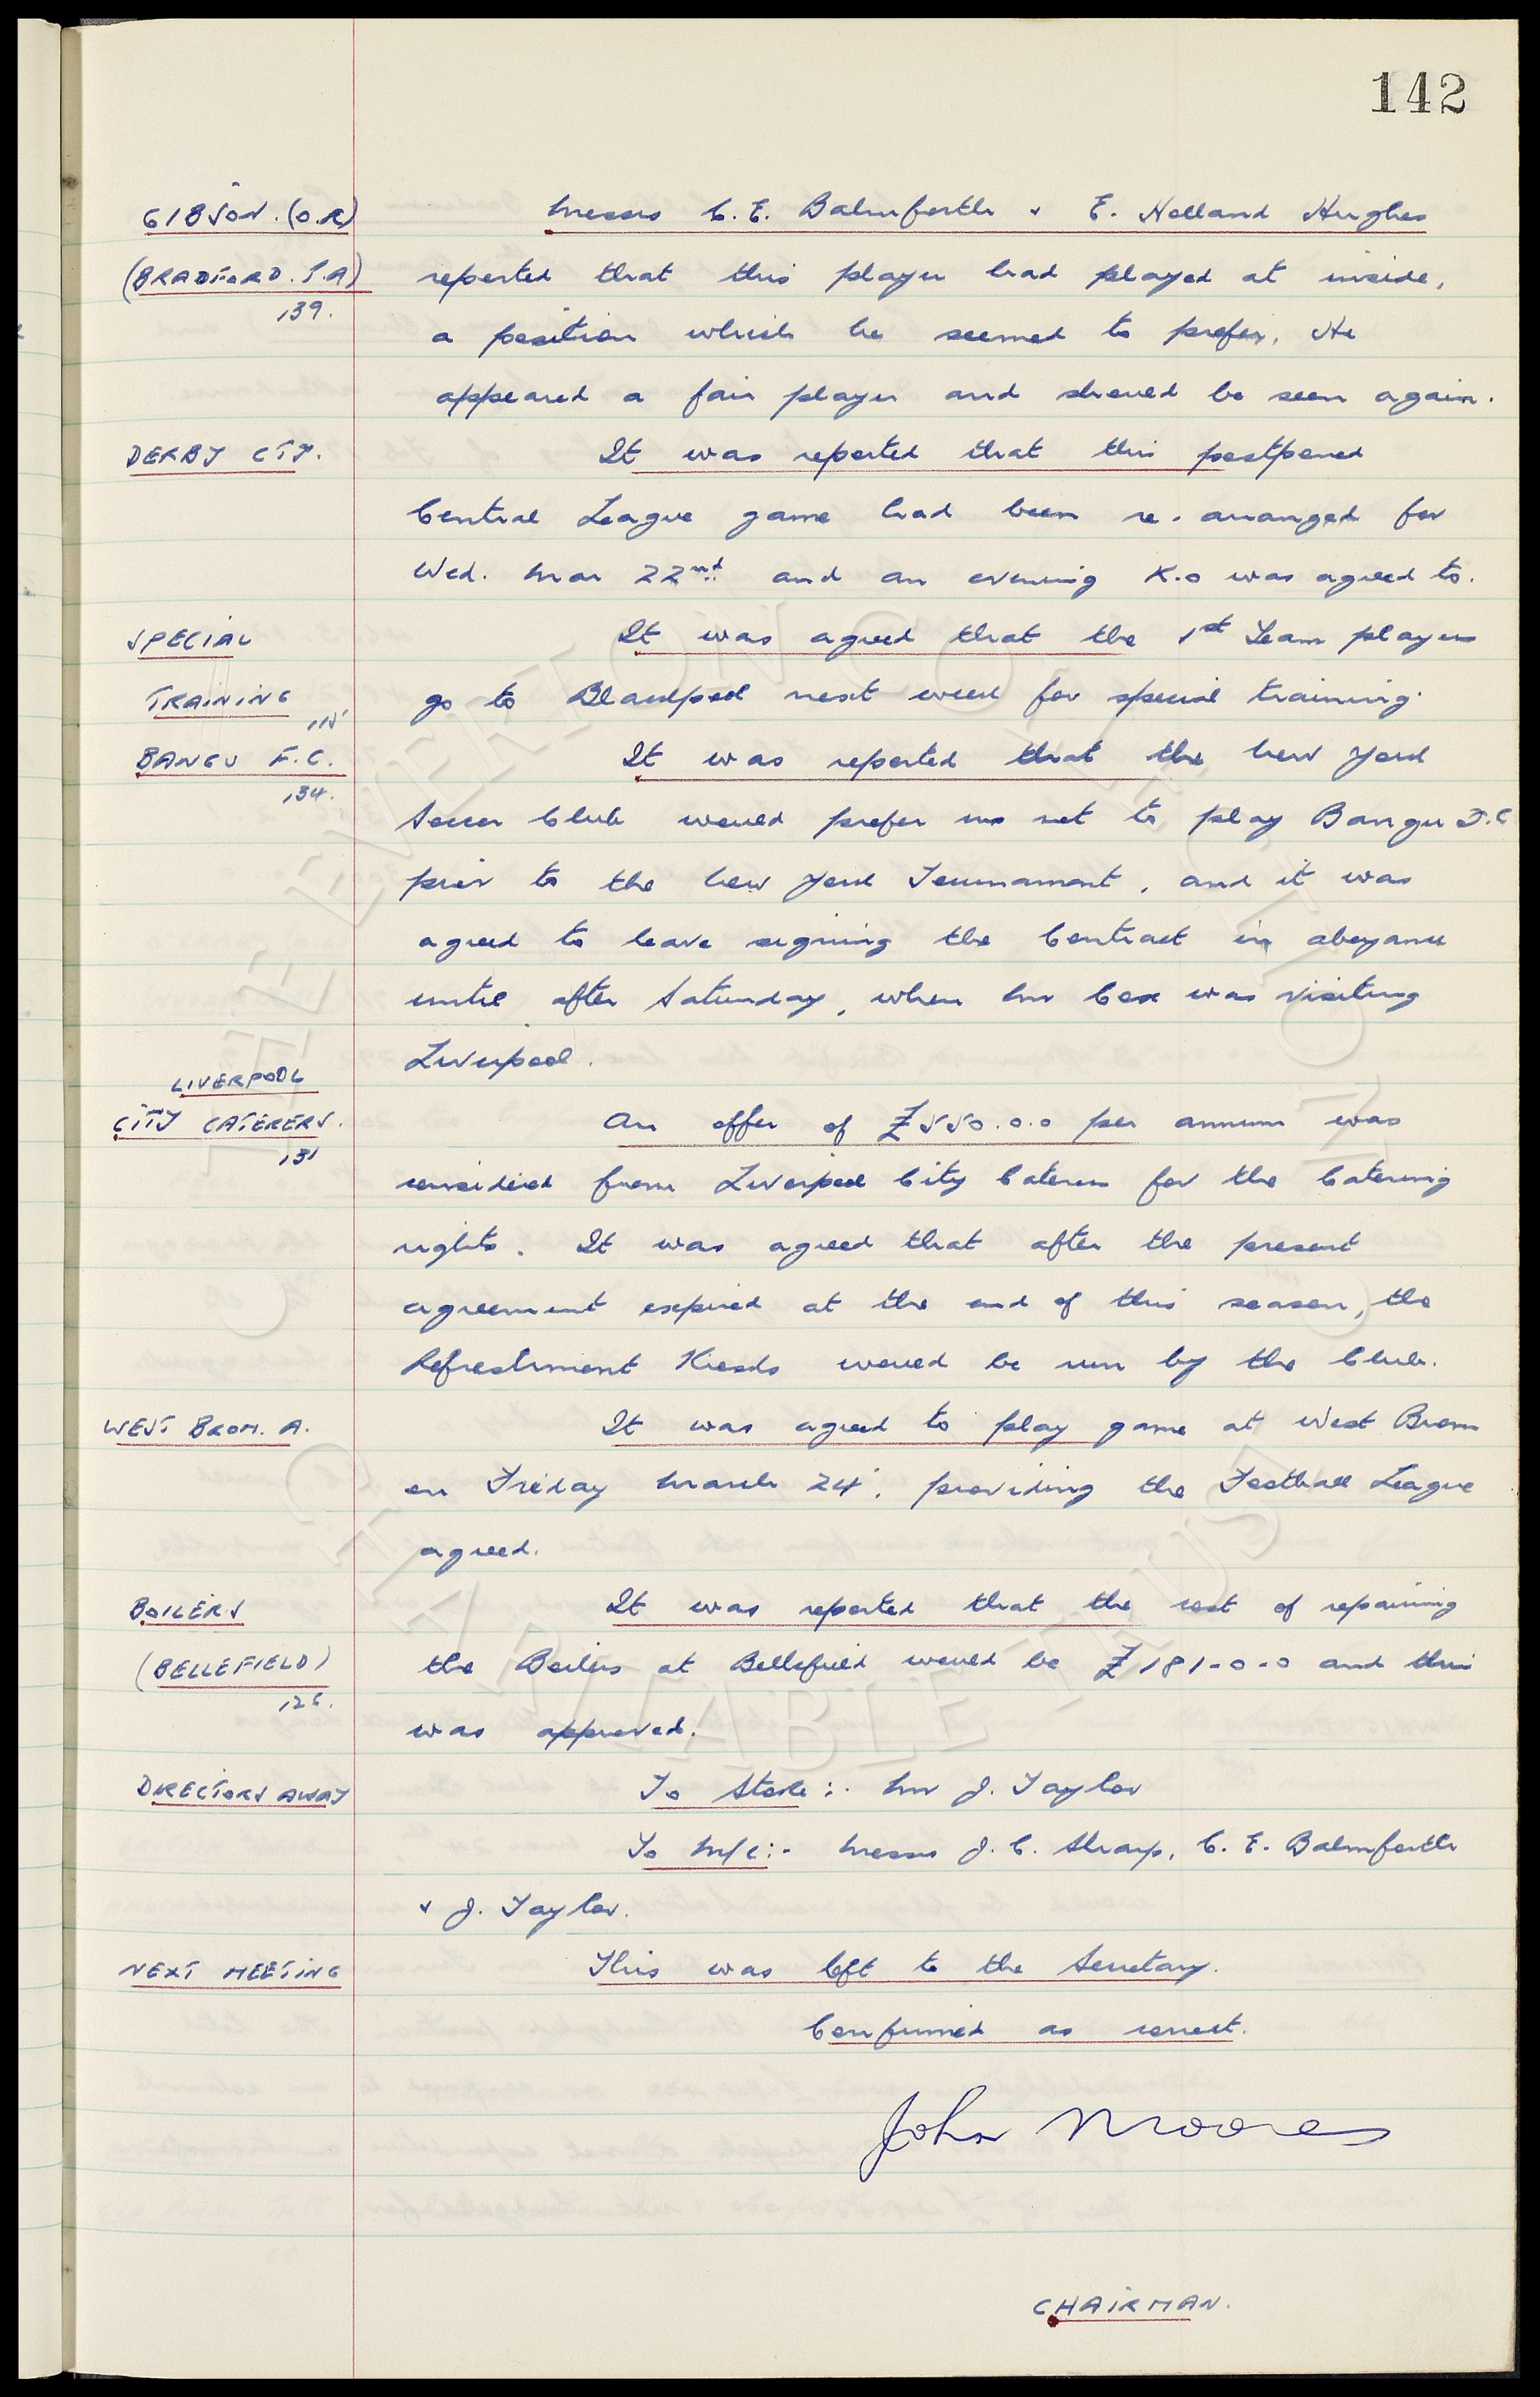 142
GIBSON. (O.R) Messrs C. E. Balmforth & E. Holland Hughes
(BRADFORD. P.A) reported that this player had played at inside,
139. a position which he seemed to prefer. He
appeared a fair player and should be seen again.
DERBY CTY. It was reported that this postponed
Central League game had been re-arranged for
Wed. Mar 22nd and an evening K.O was agreed to.
SPECIAL It was agreed that the 1st Team players
TRAINING go to Blackpool next week for special training.
115
BANGU F.C. It was reported that the New York
134. Soccer Club would prefer us not to play Bangu F.C
prior to the New York Tournament, and it was
agreed to leave signing the Contract in abeyance
until after Saturday, when Mr Cox was visiting
Liverpool.
LIVERPOOL
CITY CATERERS. An offer of £550.0.0 per annum was
131 considered from Liverpool City Caterers for the Catering
rights. It was agreed that after the present
agreement expired at the end of this season, the
Refreshment Kiosks would be run by the Club.
WEST BROM. A. It was agreed to play game at West Brom
on Friday March 24. providing the Football League
agreed.
BOILERS It was reported that the cost of repairing
(BELLEFIELD) the Boilers at Bellefield would be £181-0-0 and this
126. was approved.
DIRECTORS AWAY To Stoke:- Mr J. Taylor
To M/c:- Messrs J. C. Sharp, C. E. Balmforth
& J. Taylor.
NEXT MEETING This was left to the Secretary.
Confirmed as correct.
John Moores
CHAIRMAN.
THE EVERTON COLLECTION CHARITABLE TRUST